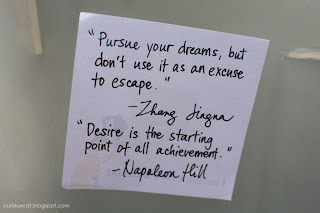 "Pursue your dreams, but
don't use it as an excuse
to escape."
-Zhang Jingna
"Desire is the starting
point of all achievement."
-Napoleon Hill
cutieuxcat.blogspot.com